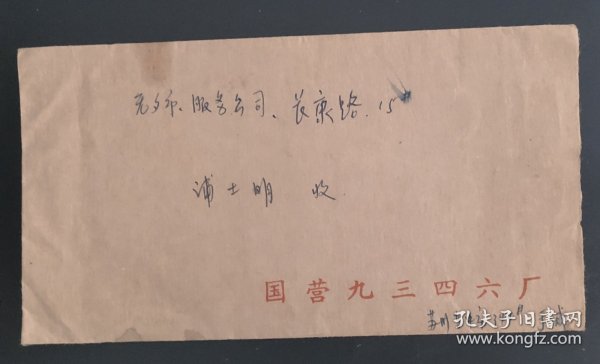 无夕市、服务公司、长康路.15#
浦士明 收
国营九三四六厂
苏州
孔夫子旧书网
www.kongfz.com